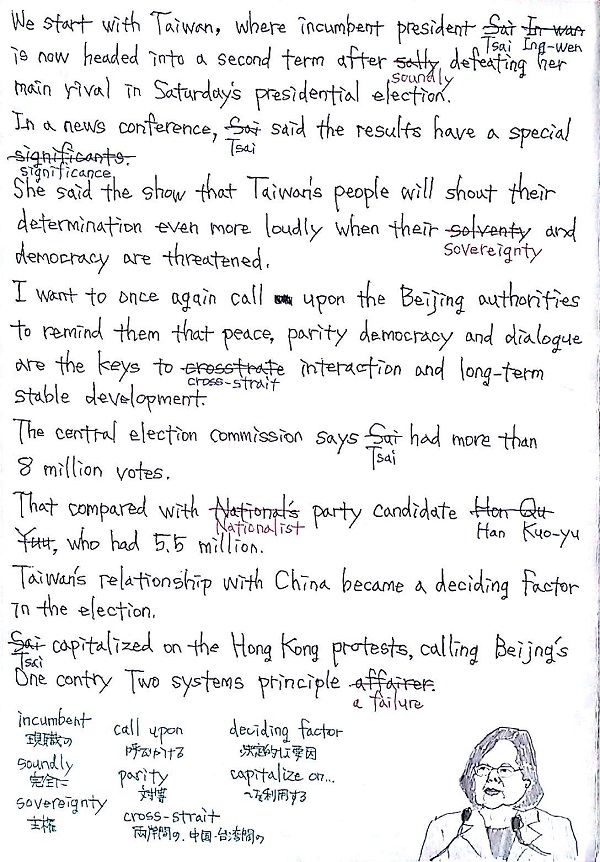 We start with Taiwan, where incumbent president Sai In-wan
Tsai Ing-wen
is now headed into a second term after sally, defeating her
soundly
main rival in Saturday's presidential election.
In a news conference, Sai said the results have a special
Tsai
significants.
significance
She said the show that Taiwan's people will shout their
determination even more loudly when their solventy and
sovereignty
democracy are threatened.
I want to once again call upon the Beijing authorities
to remind them that peace, parity democracy and dialogue
are the keys to crosstrate interaction and long-term
cross-strait
stable development.
The central election commission says Sai had more than
Tsai
8 million votes.
That compared with National's party candidate Hon Qu
Nationalist Han Kuo-yu
Yuu, who had 5.5 million.
Taiwan's relationship with China became a deciding factor
in the election.
Sai capitalized on the Hong Kong protests, calling Beijng's
Tsai
One contry Two systems principle affairer.
a failure
incumbent call upon deciding factor
現職の 呼びかける 決定的な要因
soundly parity capitalize on...
完全に 対等 〜を利用する
sovereignty cross-strait
主権 両岸間の、中国・台湾間の